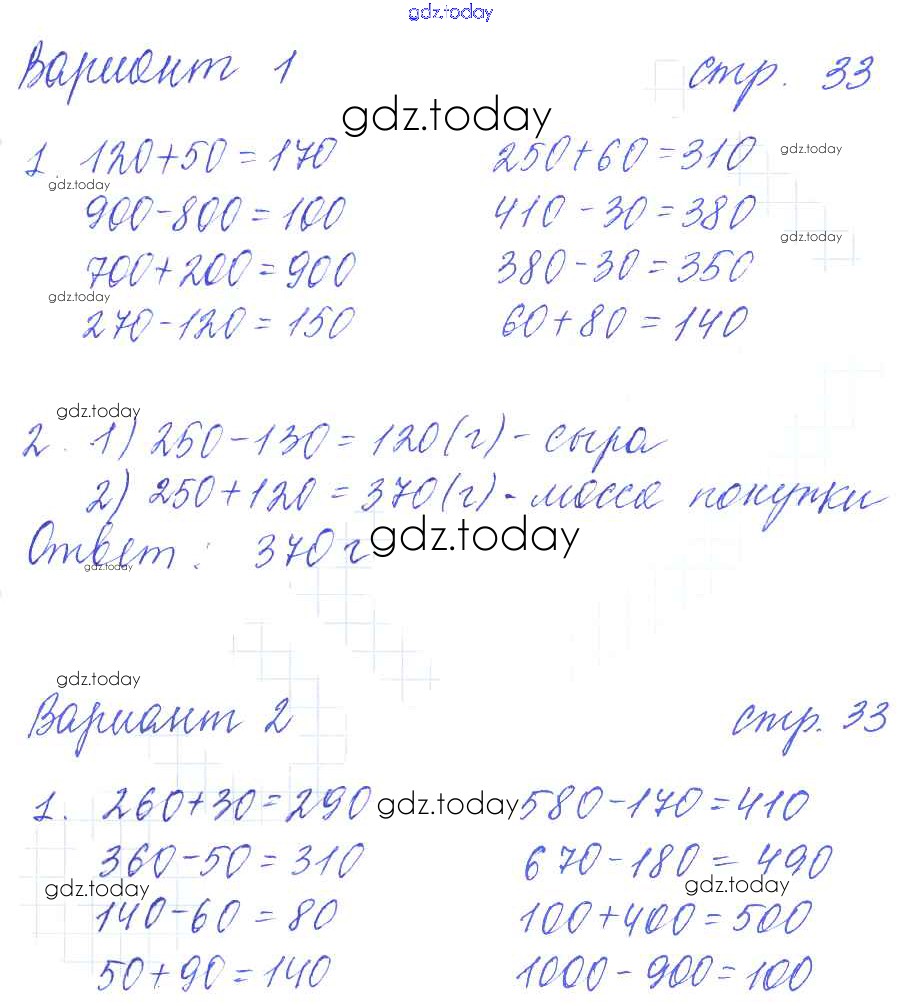 gdz.today
Вариант 1 стр. 33
gdz.today
1. 120+50=170 250+60=310 gdz.today
gdz.today
900-800=100 410-30=380
gdz.today
700+200=900 380-30=350
gdz.today
270-120=150 60+80=140
gdz.today
2. 1) 250-130=120(г)- сыра
2) 250+120=370(г)- масса покупки
Ответ: 370 г gdz.today
gdz.today
gdz.today
Вариант 2 стр. 33
1. 260+30=290 gdz.today 580-170=410
360-50=310 670-180=490
gdz.today gdz.today
140-60=80 100+400=500
50+90=140 1000-900=100